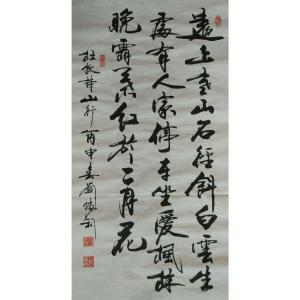 遠上寒山石徑斜白雲生
處有人家停車坐愛楓林
晚霜葉紅於二月花
杜牧詩山行丙申春劉